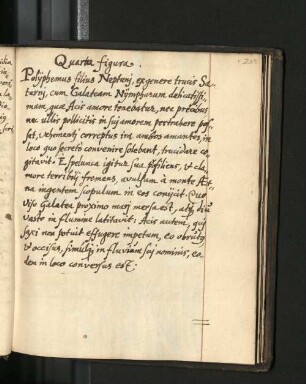 Quarta figura.
Polÿphemus filius Neptuni, ex genere trucis Sa-
turni, cum Galateam Nÿmpharum delicatißi-
mam, quæ Acis amore tenebatur, nec precibus
nec ullis pollicitis in sui amorem pertrahere pos-
set, vehementi correptus ira ambos amantes, in
loco quo secretò convenire solebant, trucidare co-
gitavit. E spelunca igitur sua prosiliens, et cla-
more terribili fremens, avulsum à monte Æt-
na ingentem scopulum in eos conijcit. Quo
viso Galatea proximo mari mersa est, atq diu
vasto in flumine latitavit: Acis autem, qui
saxi non potuit effugere impetum, eo obrutus
et occisus, similiq in fluvium sui nominis, eo-
dem in loco conversus est.